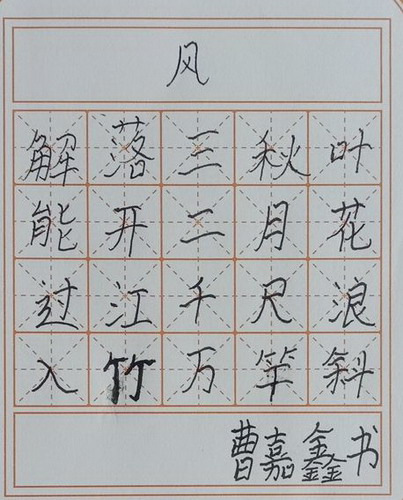 风
解落三秋叶
能开二月花
过江千尺浪
入竹万竿斜
曹嘉鑫书